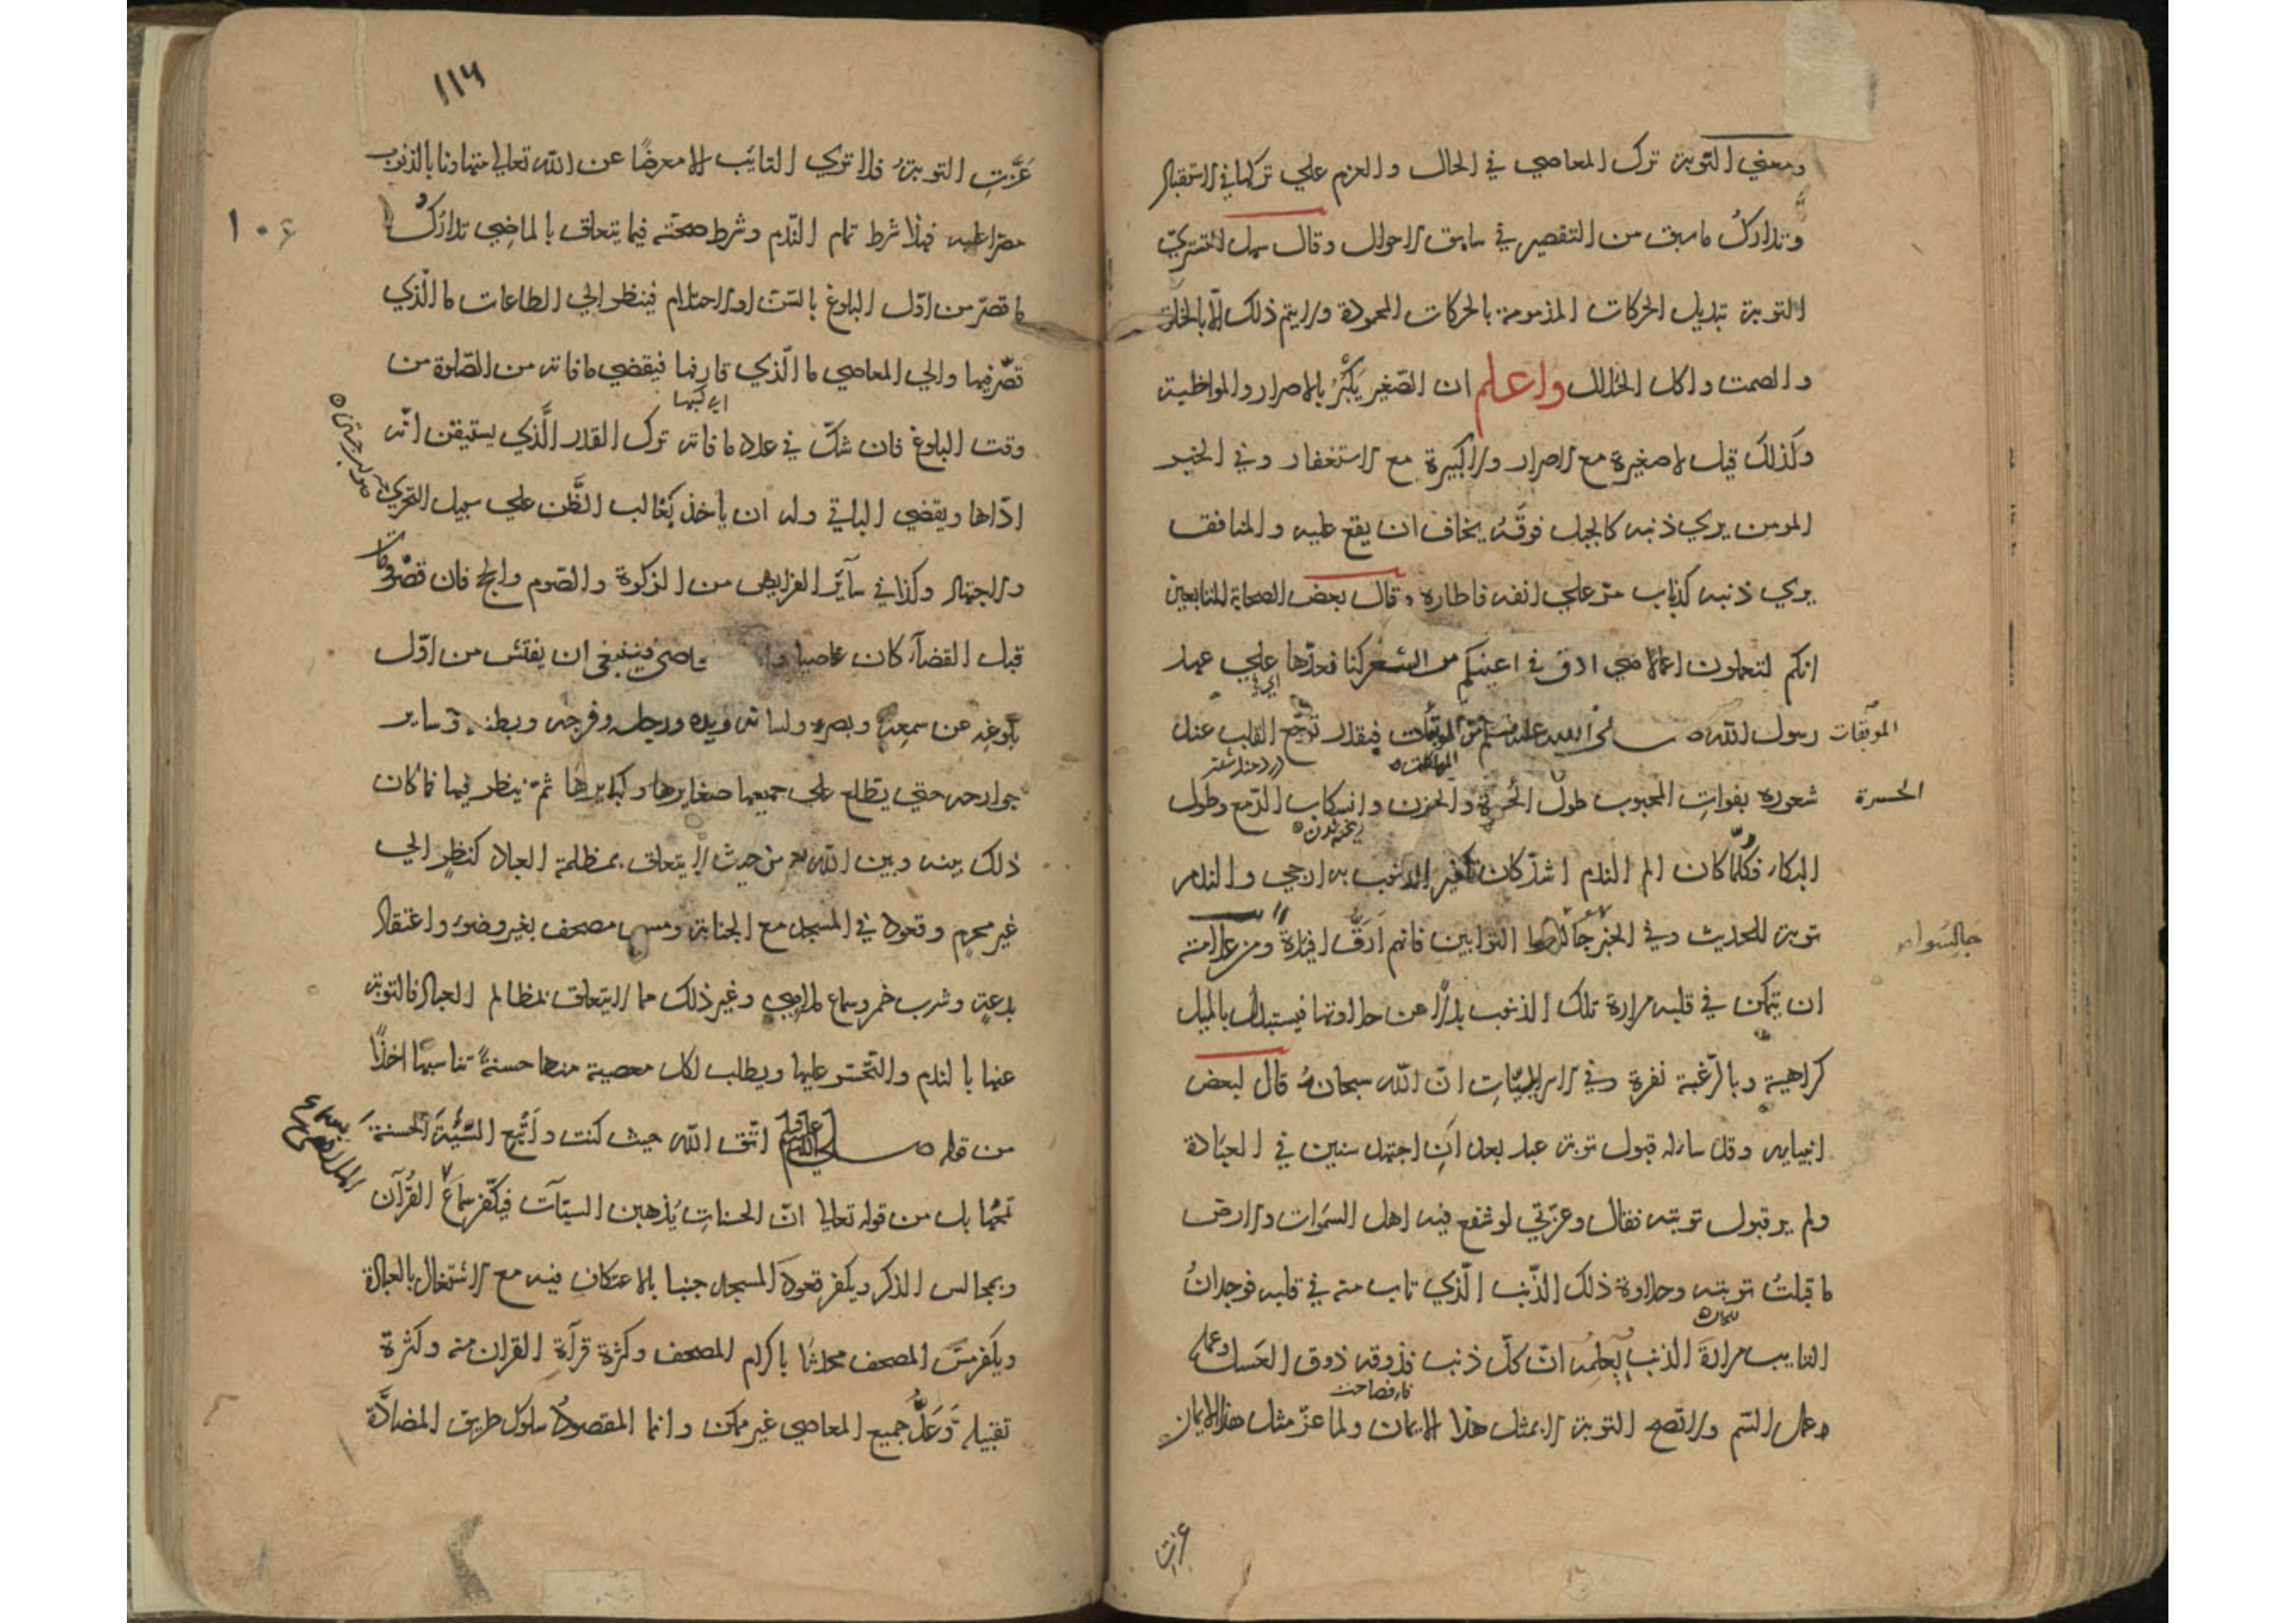 ومعني التوبة ترك المعاصي في الحال والعزم علي تركها في الاستقبال
وتدارك ما سبق من التقصير في سابق الاحوال وقال سهل التستريّ
التوبة تبديل الحركات المذمومة بالحركات المحمودة ولا يتم ذلك الّا بالخلوة
والصمت واكل الحلال واعلم ان الصّغير يَكْبُرُ بالاصرار والمواظبة
وكذلك قيل لا صغيرة مع الاصرار ولا كبيرة مع الاستغفار وفي الخبر
المومن يري ذنبه كالجبل فوقَهُ يخاف ان يقع عليه والمنافق
يري ذنبه كذباب مرّ علي انفه فاطاره وقال بعض الصحابة للتابعين
انكم لتعملون اعمالا هي ادق في اعينكم من الشعر كنا نعدّها علي عهد
اي في
رسول الله صلى الله عليه وسلم من الموبقات فبقدر توجّع القلب عند
الموبقات
المهلكات
شعوره بفوات المحبوب طول الحسرة والحزن وانسكاب الدّمع وطول
الحسرة
البكاء فكلّما كان الم الندم اشدّ كان تكفير الذنوب به ارجي والندم
توبة للحديث وفي الخبر جالسوا التوابين فانهم ارقّ افئدة ومن علامته
جالسوا
ان يتمكن في قلبه مرارة تلك الذنوب بدلًا عن حلاوتها فيستبدل بالميل
كراهية وبالرّغبة نفرة وفي الاسرائيليّات انّ الله سبحانه قال لبعض
انبيايه وقد ساله قبول توبة عبد بعد ان اجتهد سنين في العبَادة
ولم ير قبول توبته فقال وعزّتي لو شفع فيه اهل السموات والارض
ما قبلتُ توبته وحلاوة ذلك الذّنب الّذي تاب منه في قلبه فوجدانُ
التايب مرارةَ الذنب لعلمه انّ كلّ ذنب فذوقه ذوق العسل وعمله
عمل السّم ولا تصح التوبة الا بمثل هذا الايمان ولما عزّ مثل هذا الايمان
عزت
١١٦
عَزَّتِ التوبةُ فلا تري التايَب الا معرضًا عن الله تعالي متهاونا بالذنوب
مصرّا عليه فهذا شرط تمام النّدم وشرط صحّته فيما يتعلق بالماضِي تدارُكُ
١٠٦
ما قصّر من اوّل البلوغ بالسّن او الاحتلام فينظر الي الطاعات ما الّذي
قصّر فيها والي المعاصي ما الّذي قارفها فيقضي ما فاته من الصّلوة من
وقت البلوغ فان شكّ في عدد ما فاته ترك القدر الَّذي يستيقن انّه
ادّاها ويقضي الباقي وله ان يأخذ بغالب الظّن علي سبيل التحري
والاجتهاد وكذا في سآئر الفرايض من الزكوة والصّوم والحج فان
قبل القضآء كان عاصيا فينبغي ان يفتش من اوّل
بلوغه عن سمعه وبصره ولسانه ويده ورجله وفرجه وبطنه وساير
جوارحه حتي يطلع علي جميعها صغايرها وكبايرها ثمّ ينظر فيها فما كان
ذلك بينه وبين الله من حيث لا يتعلق بمظلمة العباد كنظر الي
غير محرم وقعود في المسجد مع الجنابة ومس مصحف بغير وضوء واعتقاد
بدعة وشرب خمر وسماع ملاهي وغير ذلك مما لا يتعلق بمظالم العباد فالتوبة
عنها بالندم والتّحسّر عليها ويطلب لكل معصية منها حسنةً تناسبها اخذًا
من قوله صلي الله عليه وسلم اتّق الله حيث كنت واَتْبِع السّيّئةَ الحسنة
تمحُها بل من قوله تعالي انّ الحسناتِ يُذهبن السيّآت فيكفّر سماعَ القرآن
وبمجالس الذكر ويكفر قعود المسجد جنبا بالاعتكاف فيه مع الاشتغال بالعبادة
ويكفر مسّ المصحف محدثا باكرام المصحف وكثرة قرآة القران منه وكثرة
تقبيله وَعَدُّ جميع المعاصي غير ممكن وانما المقصودُ سلوك طريق المضادَّة